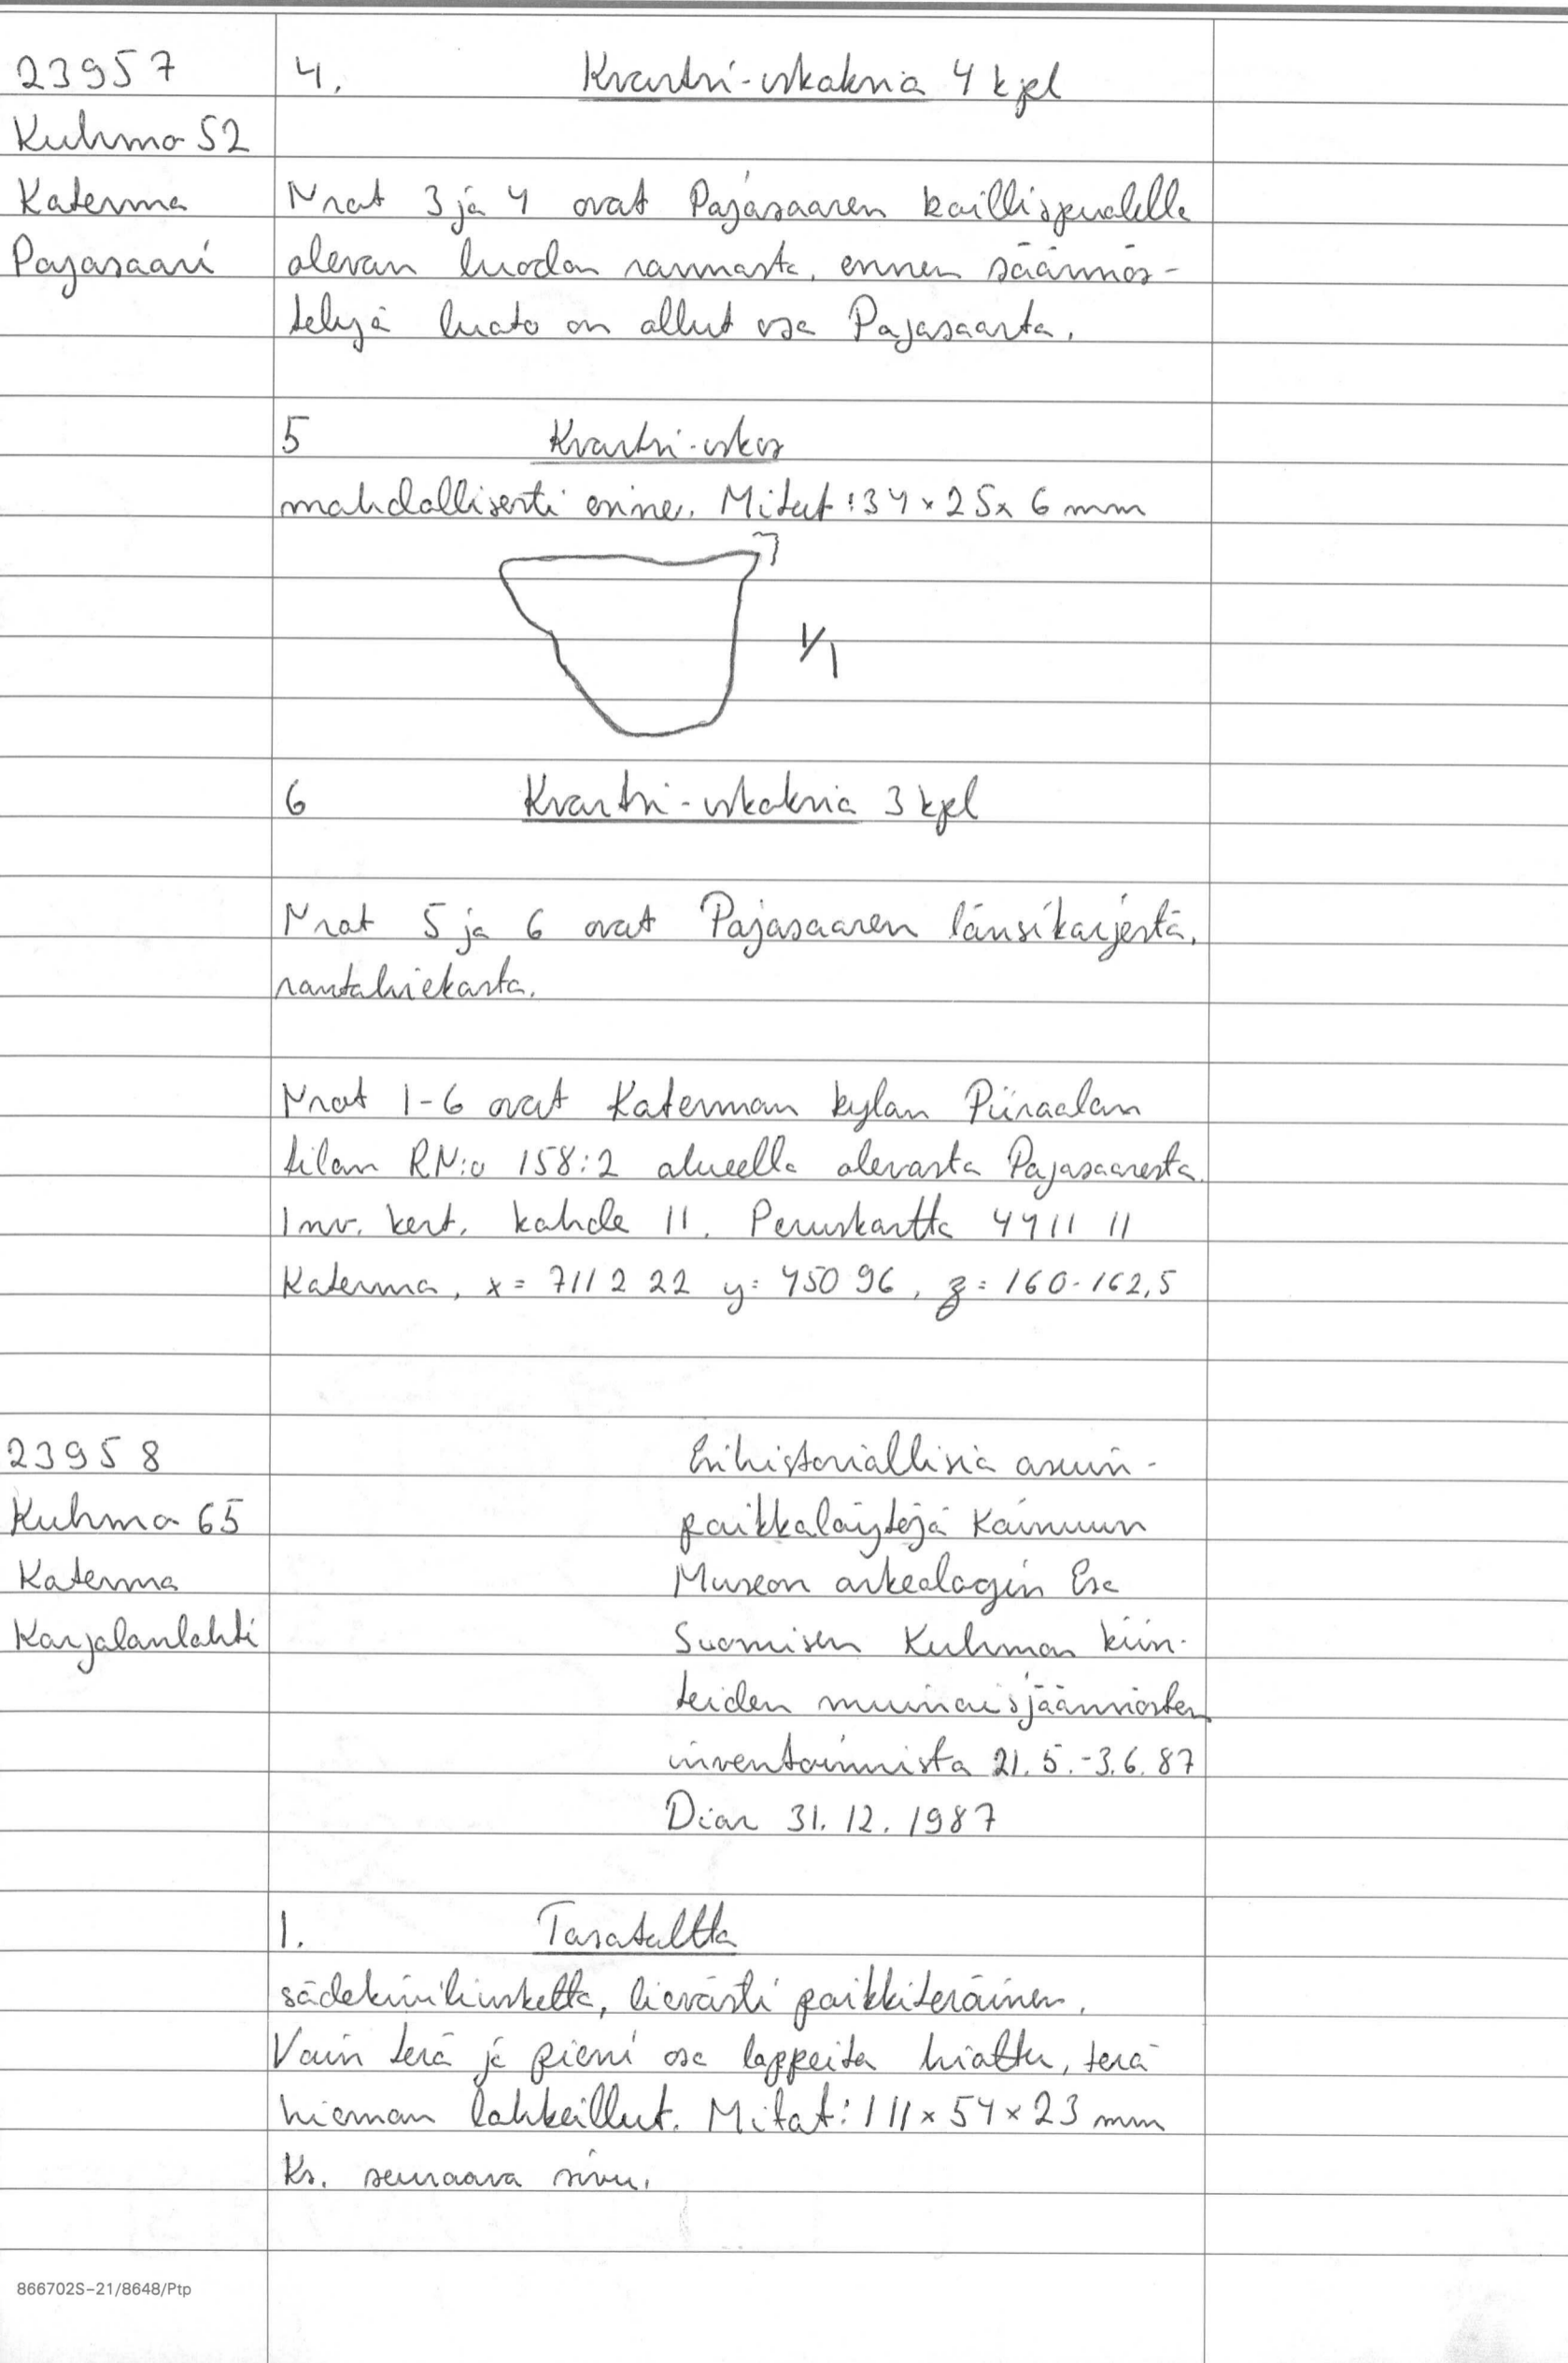 23957
Kuhmo 52
Katerma
Pajasaari
4. Kvartsi-iskoksia 4 kpl
Nrot 3 ja 4 ovat Pajasaaren koillispuolella
olevan luodon rannasta, ennen säännös-
telyä luoto on ollut osa Pajasaarta.
5 Kvartsi-iskos
mahdollisesti esine. Mitat: 34 x 25 x 6 mm
1/1
6 Kvartsi-iskoksia 3 kpl
Nrot 5 ja 6 ovat Pajasaaren länsikärjestä,
rantahiekasta.
Nrot 1-6 ovat Katerman kylän Piiraalan
tilan RN:o 158:2 alueella olevasta Pajasaaresta.
Inv. kert. kohde 11. Peruskartta 4411 11
Katerma, x = 7112 22 y = 450 96, z = 160-162,5
23958
Kuhmo 65
Katerma
Karjalanlahti
Esihistoriallisia asuin-
paikkalöytöjä Kainuun
Museon arkeologin Esa
Suomisen Kuhmon kiin-
teiden muinaisjäännösten
inventoinnista 21.5.-3.6.87
Diar 31.12.1987
1. Tasataltta
sädekiviliusketta, lievästi poikkiteräinen.
Vain terä ja pieni osa lappeita hiottu, terä
hieman lohkeillut. Mitat: 111 x 54 x 23 mm
Ks. seuraava sivu.
866702S-21/8648/Ptp